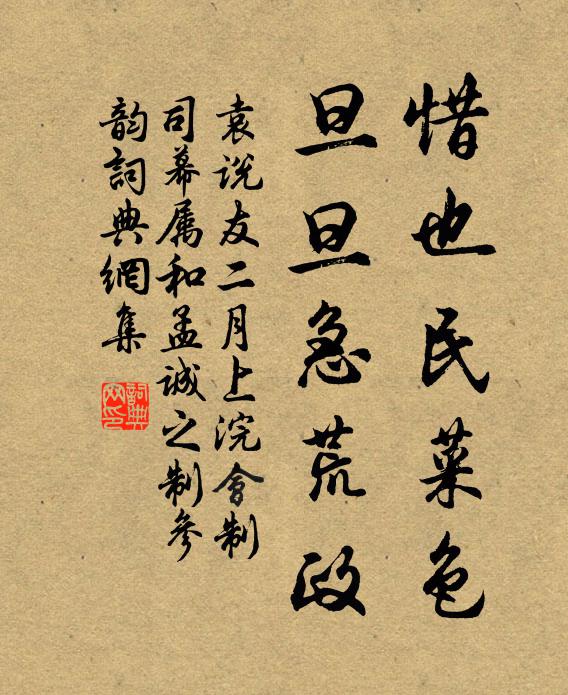 惜也民菜色
旦旦急荒政
袁说友二月上浣會制
司幕属和孟诚之制參
韵詞典網集
詞典
网印